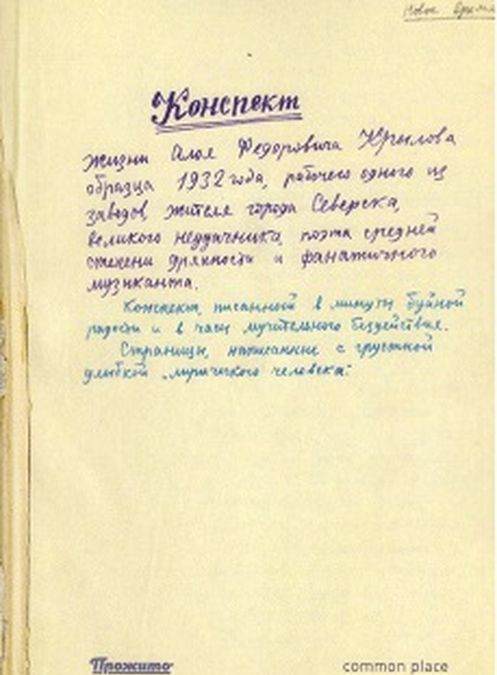 Новое время
Конспект
жизни Алоя Федоровича Крылова
образца 1932 года, рабочего одного из
заводов, жителя города Северска,
великого неудачника, поэта средней
степени дрянности и фанатичного
музыканта.
Конспект, писанный в минуты буйной
радости и в часы мучительного бездействия.
Страницы, написанные с грустной
улыбкой „лирического человека".
Прожито
common place